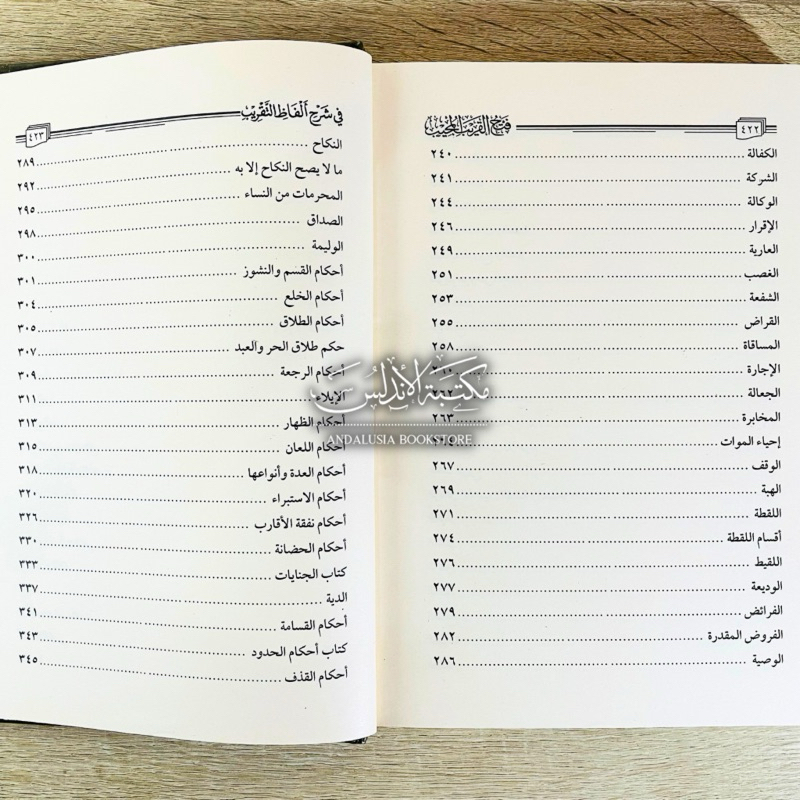 فتح القريب المجيب ٤٢٢
الكفالة ٢٤٠
الشركة ٢٤١
الوكالة ٢٤٤
الإقرار ٢٤٦
العارية ٢٤٩
الغصب ٢٥١
الشفعة ٢٥٣
القراض ٢٥٥
المساقاة ٢٥٨
الإجارة ٢٦٠
الجعالة ٢٦٢
المخابرة ٢٦٣
إحياء الموات
الوقف ٢٦٧
الهبة ٢٦٩
اللقطة ٢٧١
أقسام اللقطة ٢٧٤
اللقيط ٢٧٦
الوديعة ٢٧٧
الفرائض ٢٧٩
الفروض المقدرة ٢٨٢
الوصية ٢٨٦
في شرح ألفاظ التقريب ٤٢٣
النكاح ٢٨٩
ما لا يصح النكاح إلا به ٢٩٢
المحرمات من النساء ٢٩٥
الصداق ٢٩٨
الوليمة ٣٠٠
أحكام القسم والنشوز ٣٠١
أحكام الخلع ٣٠٤
أحكام الطلاق ٣٠٥
حكم طلاق الحر والعبد ٣٠٧
أحكام الرجعة ٣٠٩
الإيلاء ٣١١
أحكام الظهار ٣١٣
أحكام اللعان ٣١٥
أحكام العدة وأنواعها ٣١٨
أحكام الاستبراء ٣٢٠
أحكام نفقة الأقارب ٣٢٦
أحكام الحضانة ٣٣٠
كتاب الجنايات ٣٣٣
الدية ٣٣٧
أحكام القسامة ٣٤١
كتاب أحكام الحدود ٣٤٣
أحكام القذف ٣٤٥
مكتبة الأندلس
ANDALUSIA BOOKSTORE